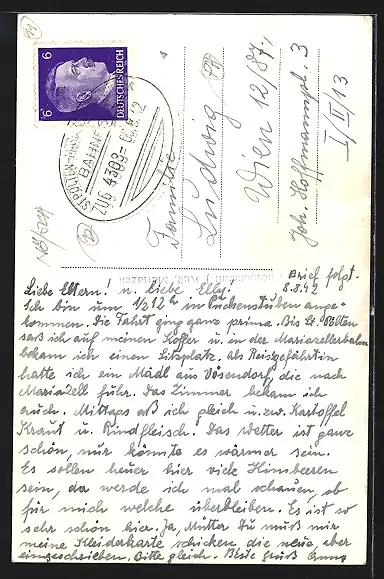 6
6
DEUTSCHES REICH
ST.PÖLTEN-
BAHNPOST
ZUG 4303
Familie
Ludwig
Wien 12/87
Joh. Hoffmannpl. 3
I/II/13
Brief folgt.
8.8.42
Liebe Eltern! u. liebe Elly.
Ich bin um 1/2 12h in Puchenstuben ange-
kommen. Die Fahrt ging ganz prima. Bis St. Pölten
saß ich auf meinen Koffer u. in der Mariazellerbahn
bekam ich einen Sitzplatz. Als Reisegefährtin
hatte ich ein Mädl aus Vösendorf, die nach
Mariazell fuhr. Das Zimmer bekam ich
auch. Mittags aß ich gleich u. zw. Kartoffel
Kraut u. Rindfleisch. Das Wetter ist ganz
schön, nur könnte es wärmer sein.
Es sollen heuer hier viele Himbeeren
sein, da werde ich mal schauen, ob
für mich welche überbleiben. Es ist so
sehr schön hier. Ja, Mutter Du mußt mir
meine Kleiderkarte schicken die neue, aber
eingeschrieben, Bitte gleich.